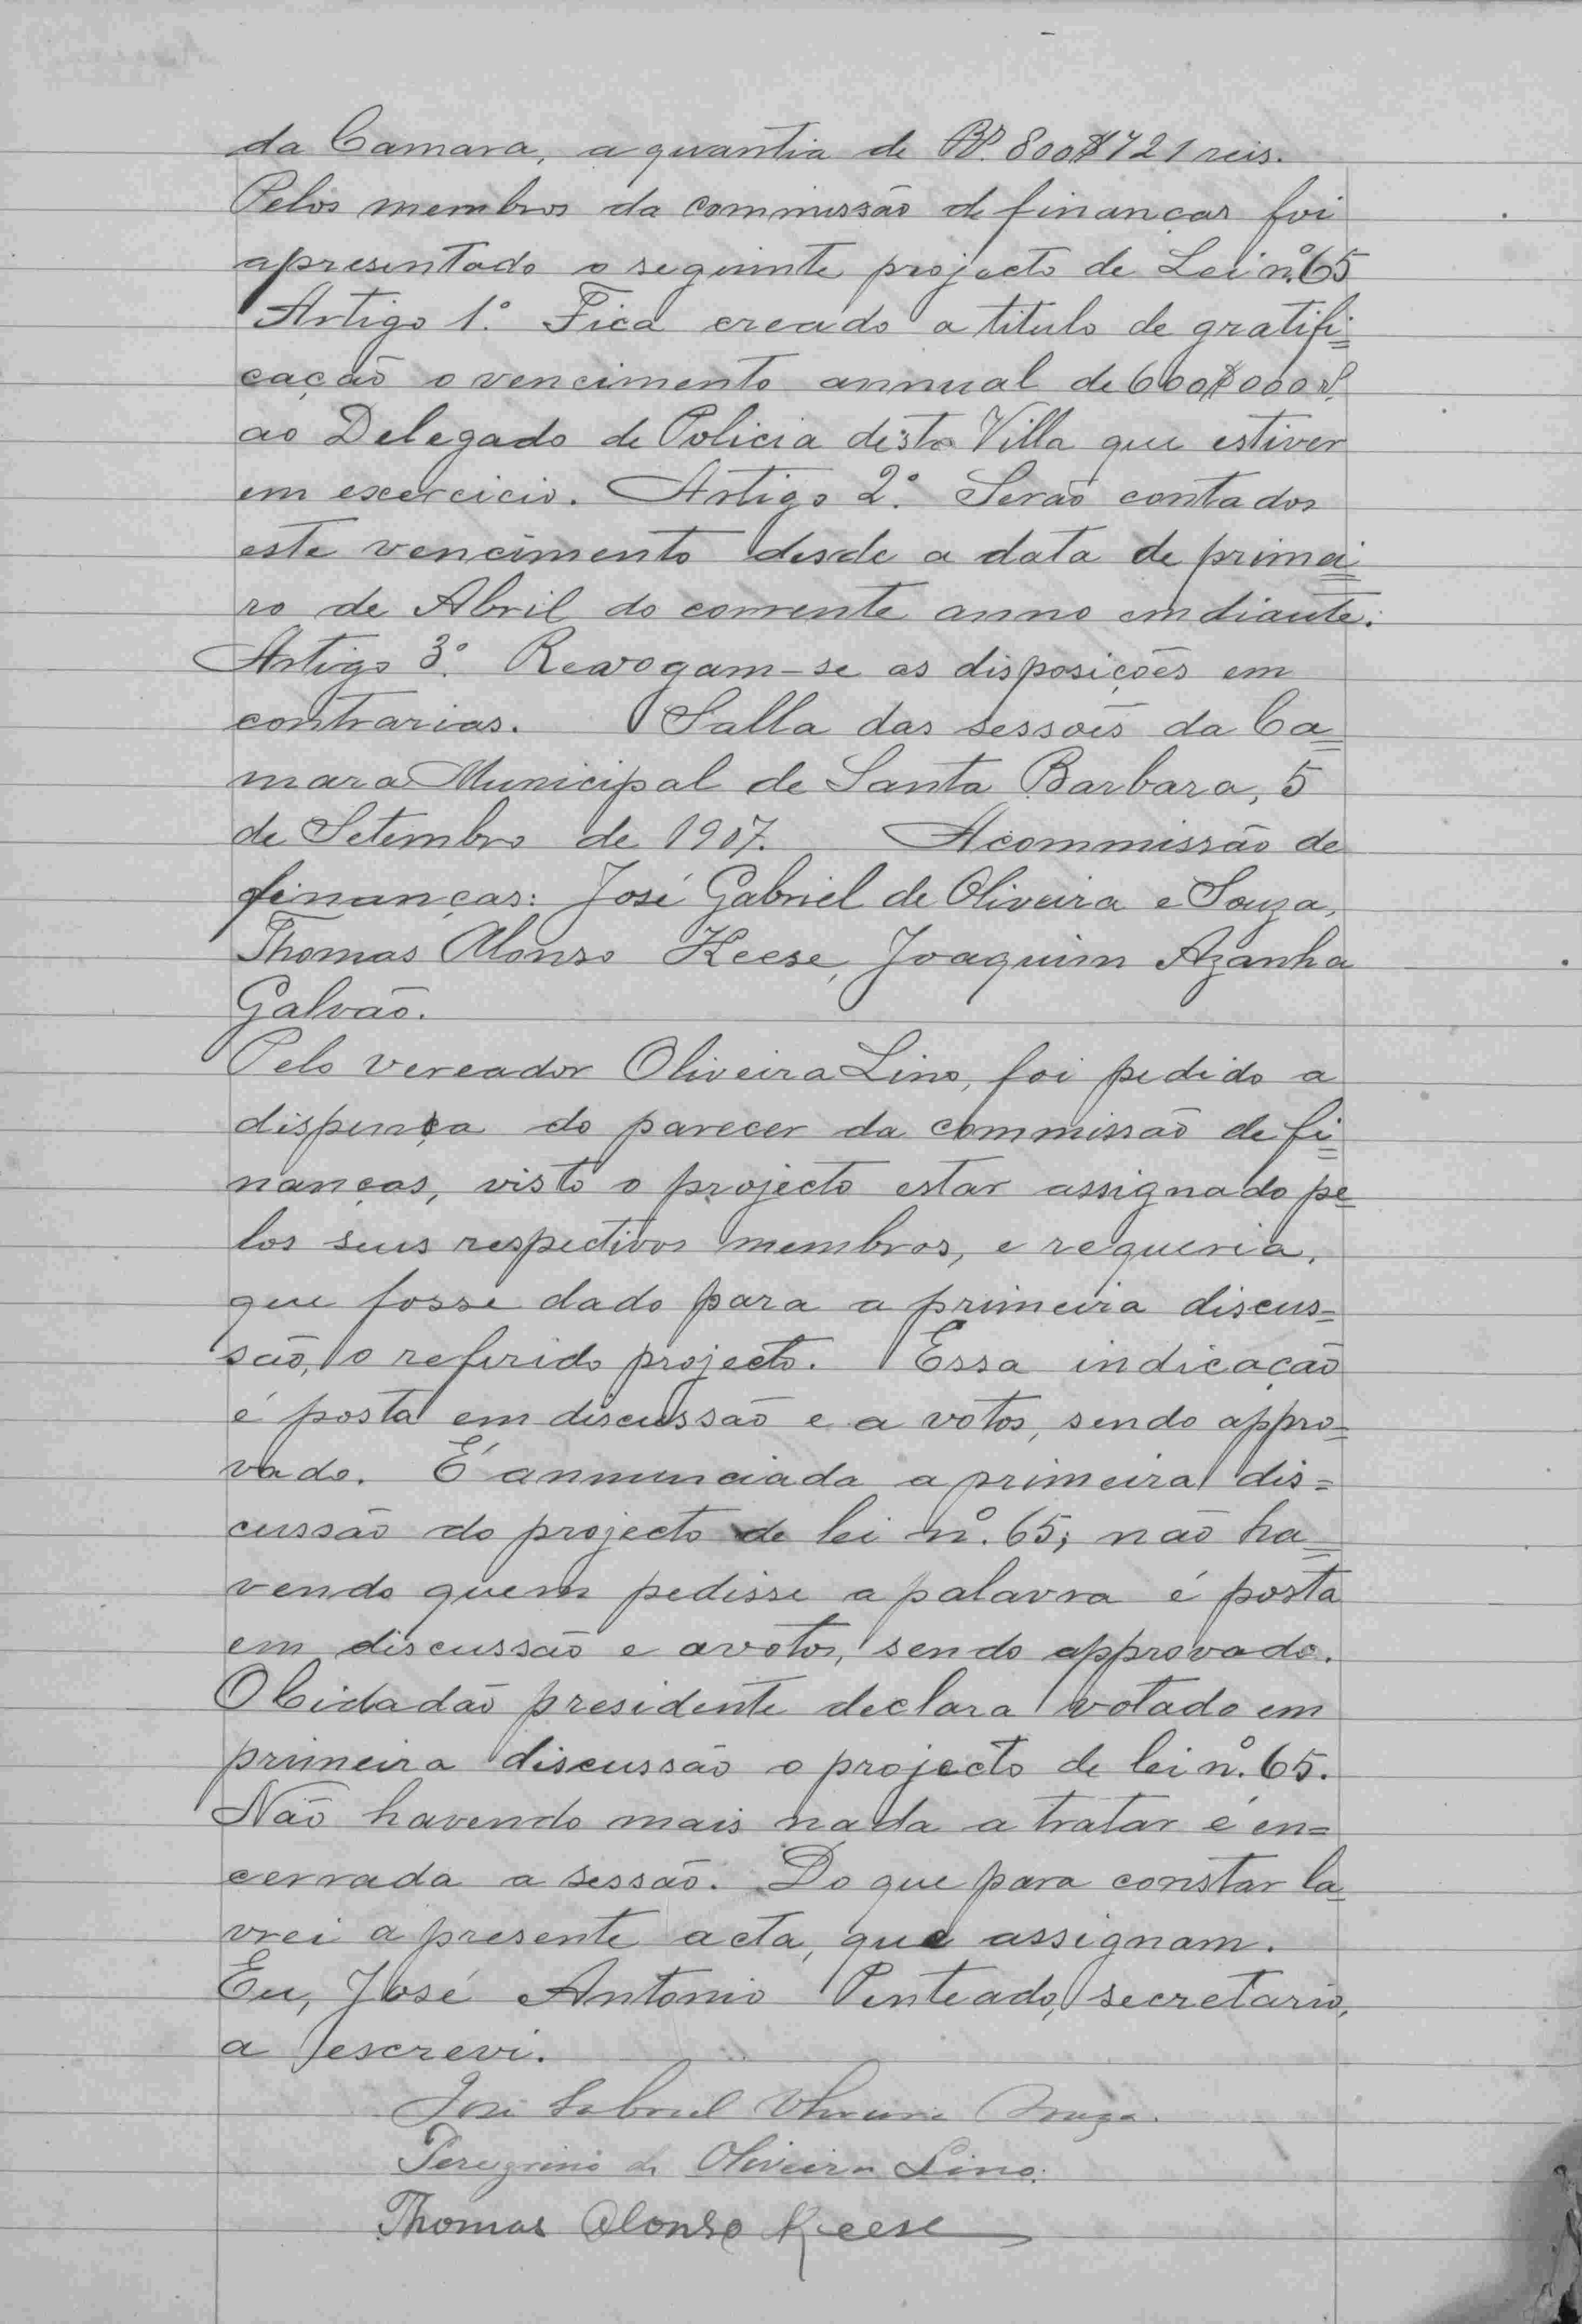 da Camara, a quantia de R$. 800$721 reis.
Pelos membros da commissão de finanças foi
apresentado o seguinte projecto de Lei nº 65
Artigo 1º. Fica creado a titulo de gratifi=
cação o vencimento annual de 600$000 rs.
ao Delegado de Policia desta Villa que estiver
em exercicio. Artigo 2º. Serão contados
este vencimento desde a data de primei=
ro de Abril do corrente anno em diante.
Artigo 3º. Revogam-se as disposições em
contrarias. Salla das sessões da Ca=
mara Municipal de Santa Barbara, 5
de Setembro de 1907. A commissão de
finanças: José Gabriel de Oliveira e Souza,
Thomas Alonso Keese, Joaquim Azanha
Galvão.
Pelo vereador Oliveira Lino, foi pedido a
dispensa do parecer da commissão de fi=
nanças, visto o projecto estar assignado pe=
los seus respectivos membros, e requeria,
que fosse dado para a primeira discus=
são, o referido projecto. Essa indicação
é posta em discussão e a votos, sendo appro=
vado. É annunciada a primeira dis=
cussão do projecto de lei nº. 65; não ha=
vendo quem pedisse a palavra é posta
em discussão e a votos, sendo approvado.
O Cidadão presidente declara votado em
primeira discussão o projecto de lei nº. 65.
Não havendo mais nada a tratar é en=
cerrada a sessão. Do que para constar la=
vrei a presente acta, que assignam.
Eu, José Antonio Penteado, secretario,
a escrevi.
José Gabriel Oliveira Souza.
Peregrino de Oliveira Lino.
Thomas Alonso Keese